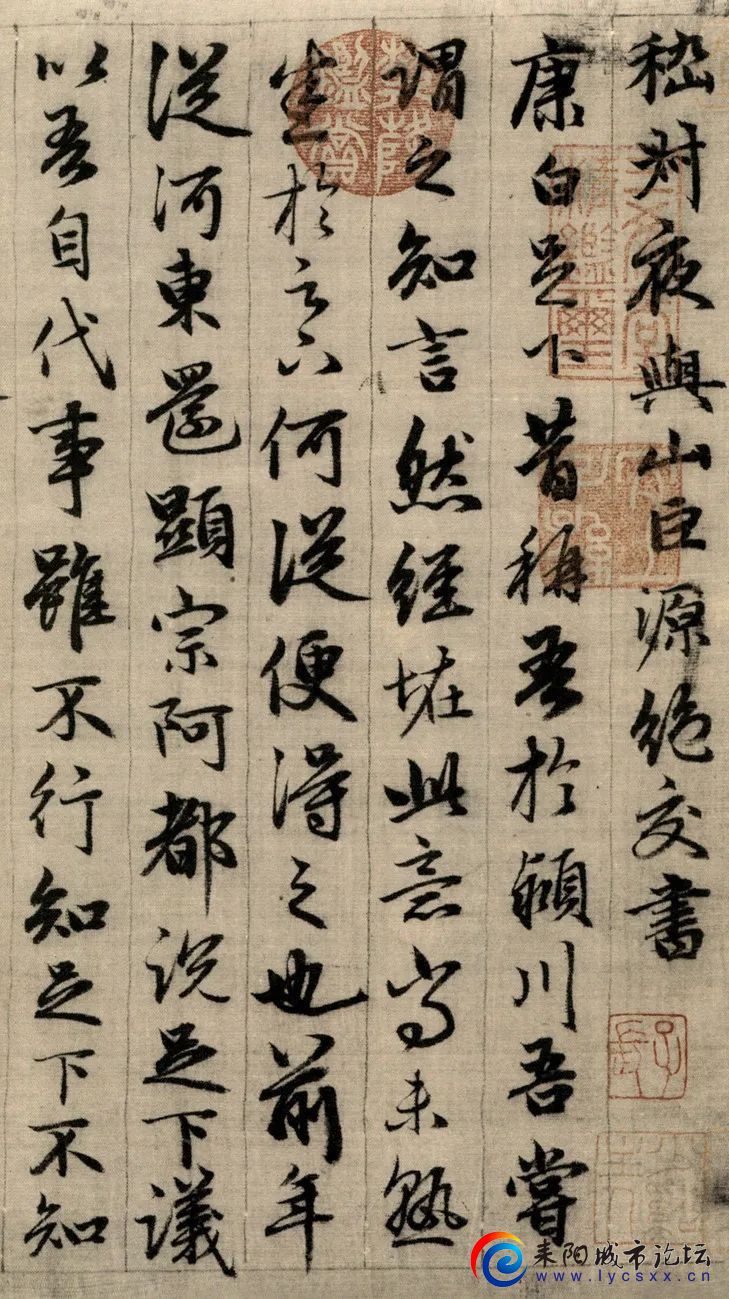 嵇叔夜與山巨源絕交書
康白足下昔稱吾於潁川吾嘗
謂之知言然經恠此意尚未熟
悉於足下何從便得之也前年
從河東還顯宗阿都說足下議
以吾自代事雖不行知足下不知
耒阳城市论坛
www.lycsxx.cn